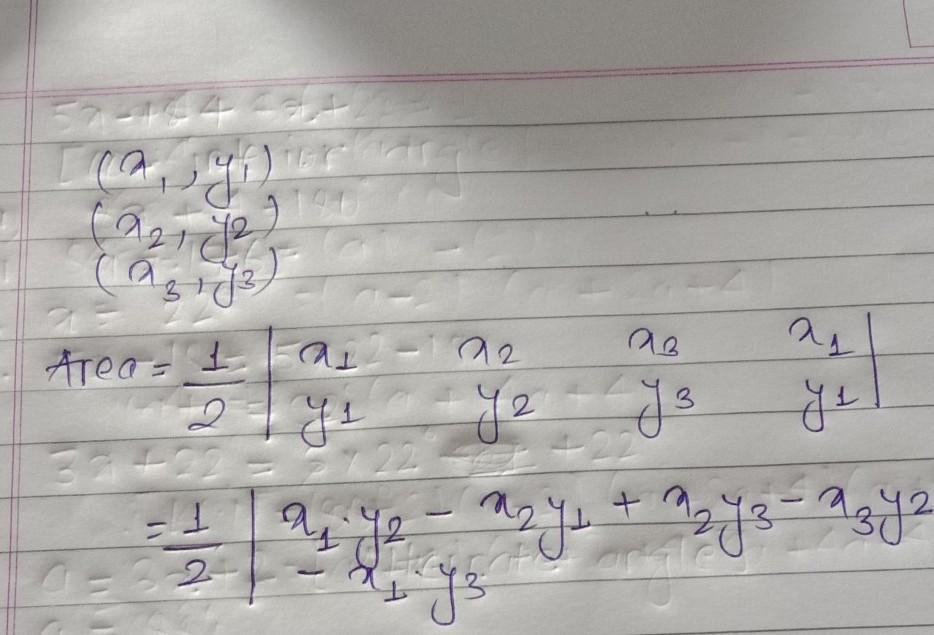 (x₁, y₁)
(x₂, y₂)
(x₃, y₃)
Area = 1/2 | x₁ x₂ x₃ x₁ |
y₁ y₂ y₃ y₁
= 1/2 | x₁·y₂ - x₂y₁ + x₂y₃ - x₃y₂
- x₁·y₃